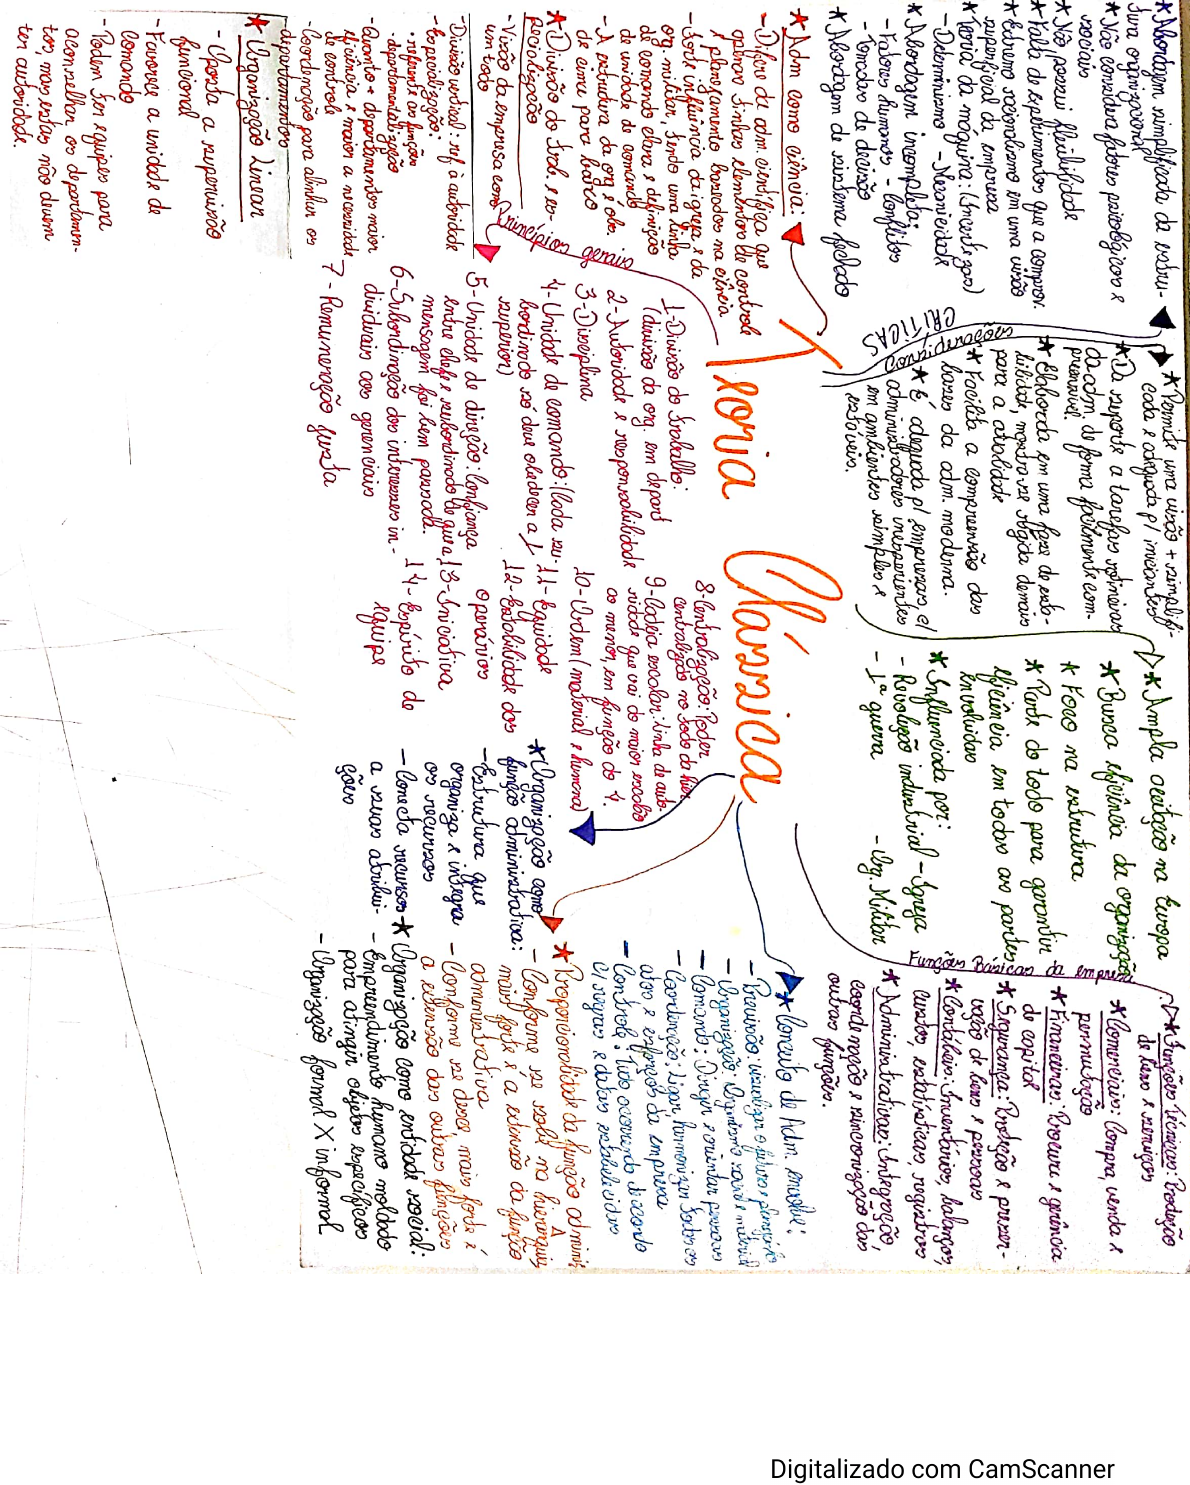 Teoria Clássica
CRÍTICAS
★ Abordagem simplificada da estru-
tura organizacional
★ Não considera fatores psicológicos e
sociais
★ Não possui flexibilidade
★ Falta de experimentos que a comprov.
★ Extremo racionalismo em uma visão
superficial da empresa
★ Teoria da máquina: (
- Determinismo - Mecanicidade
★ Abordagem incompleta:
- Fatores humanos - Conflitos
- Tomadas de decisão
★ Abordagem de sistema fechado
★ Adm como ciência:
- Difere da adm. científica que
apenas tinha elementos de controle
e planejamento baseados na ciência
- Forte influência da igreja e da
org. militar, tendo uma linha
de comando clara e definição
de unidade de comando
- A estrutura da org é obs.
de cima para baixo
★ Divisão do trab. e es-
pecialização
- Visão da empresa como
um todo
- Divisão vertical: ref à autoridade
- Especialização:
• referente as funções
• departamentalização
- Quanto + departamentos maior
eficiência e maior a necessidade
de controle
- Coordenação para alinhar os
departamentos
★ Organização Linear
- Oposta a supervisão
funcional
- Favorece a unidade de
comando
- Podem ter equipes para
aconselhar os departamen-
tos, mas estas não devem
ter autoridade.
★ Permite uma visão + simplifi-
cada e adequada p/ iniciantes
★ Da suporte a tarefas rotineiras
da adm. de forma facilmente com-
preensível
★ Elaborada em uma fase de esta-
bilidade, mostra-se rígida demais
para a atualidade
★ Facilita a compreensão das
bases da adm. moderna.
★ É adequada p/ empresas c/
administradores inexperientes
em ambientes simples e
estáveis.
Princípios gerais
1- Divisão do trabalho:
(divisão da org. em depart
2- Autoridade e responsabilidade
3- Disciplina
4- Unidade de comando: (Cada su-
bordinado só deve obedecer a 1
superior)
5- Unidade de direção: Confiança
entre chefe e subordinado de que a
mensagem foi bem passada.
6- Subordinação dos interesses in-
dividuais aos gerenciais
7- Remuneração justa
8- Centralização: Poder
centralizado no todo da hier.
9- Cadeia escalar: linha de auto-
ridade que vai do maior escalão
ao menor, em função do 4.
10- Ordem (material e humana)
11- Equidade
12- Estabilidade dos
operários
13- Iniciativa
14- Espírito de
equipe
★ Ampla aceitação na Europa
★ Busca eficiência da organização
★ Foco na estrutura
★ Parte do todo para garantir
eficiência em todas as partes
envolvidas
★ Influenciada por:
- Revolução industrial - Igreja
- 1ª guerra - Org. Militar
Funções Básicas da empresa
★ Funções técnicas: Produção
de bens e serviços
★ Comerciais: Compra, venda e
permutação
★ Financeiras: Procura e gerência
de capital
★ Segurança: Proteção e preser-
vação de bens e pessoas
★ Contábeis: Inventários, balanços,
custos, estatísticas, registros
★ Administrativas: Integração,
coordenação e sincronização das
outras funções.
★ Conceito de Adm. envolve:
- Previsão: visualizar o futuro e
- Organização: Organismo social e material
- Comando: Dirigir e orientar pessoas
- Coordenação: Ligar, harmonizar todos os
atos e esforços da empresa
- Controle: Tudo ocorrendo de acordo
c/ regras e datas estabelecidas
★ Proporcionalidade da função adminis
- Conforme se sobe na hierarquia
mais forte é a extensão da função
administrativa
- Conforme se desce mais forte é
a extensão das outras funções
★ Organização como
função administrativa:
- Estrutura que
organiza e integra
os recursos
- Conecta recursos
a suas atribui-
ções
★ Organização como entidade social:
- Empreendimento humano moldado
para atingir objetivos específicos
- Organização formal X informal
Digitalizado com CamScanner